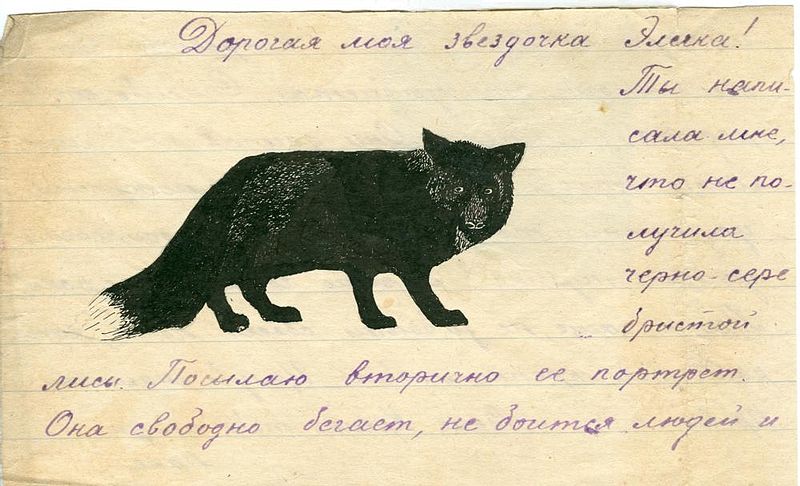 Дорогая моя звездочка Элечка!
Ты напи-
сала мне,
что не по-
лучила
черно-сере
бристой
лисы. Посылаю вторично ее портрет.
Она свободно бегает, не боится людей и